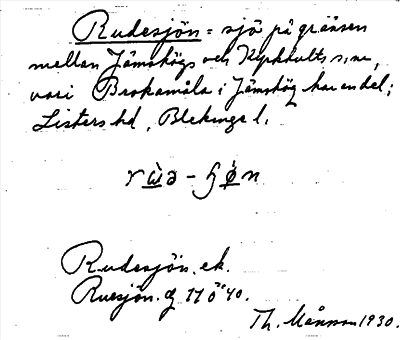 Rudesjön = sjö på gränsen
mellan Jämshögs och Kyrkhults s:nr,
vari Brokamåla i Jämshög har andel;
Listers hd, Blekinge l.
Rudesjön. ek.
Ruesjön. g 110 40.
Th. Månsson 1930.